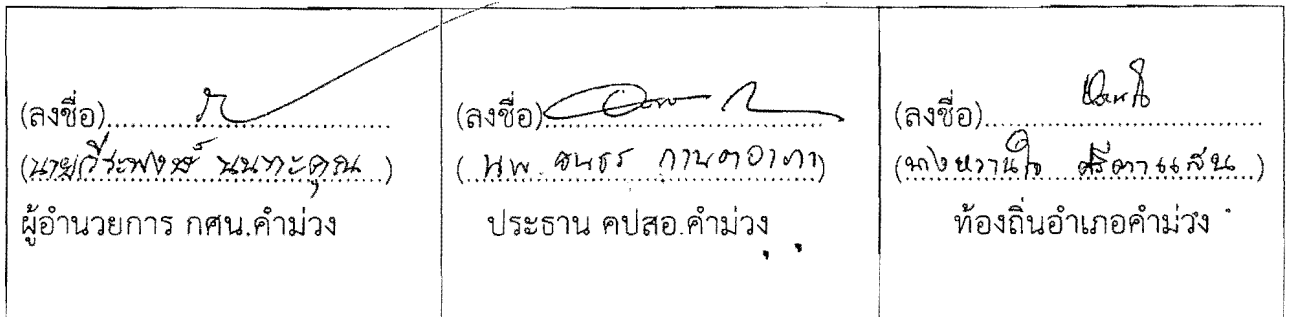 (ลงชื่อ)
(นายวีระพงษ์ นนทะคุณ)
ผู้อำนวยการ กศน.คำม่วง
(ลงชื่อ)
(นพ. ชนธร กานตอาภา)
ประธาน คปสอ.คำม่วง
(ลงชื่อ) หวานใจ
(นางหวานใจ ศรีตาแสน)
ท้องถิ่นอำเภอคำม่วง